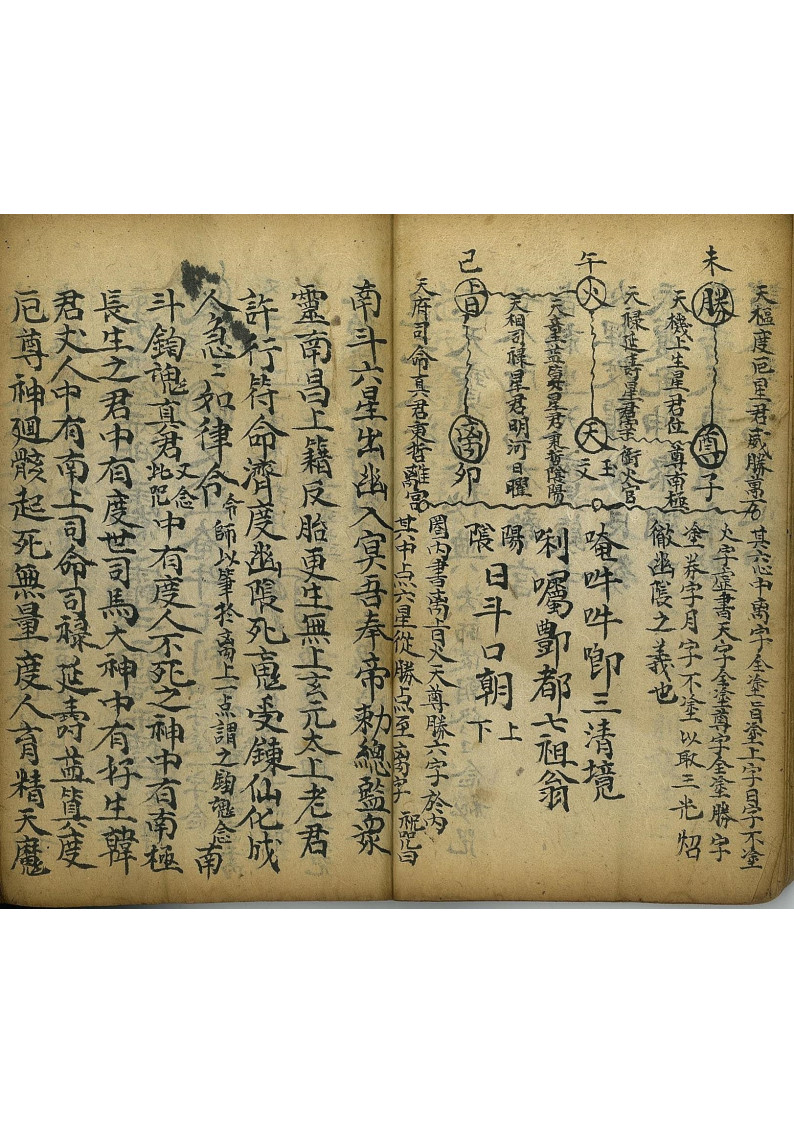 未
勝
尊
子
午
火
天
玉
文
巳
旨
离
卯
天樞度厄星君威勝萬方
天機上生星君位尊南極
天祿延壽星君字衝火官
天相司祿星君明河日曜
天府司命真君東哲離宮
其六心中离字全塗旨塗上字日字不塗
火字虛書天字全塗尊字全塗勝字
塗券字月字不塗以取三光炤
徹幽陰之義也
唵吽吽唧三清境
唎囑酆都七祖翁
陽
陰
日斗口朝
上
下
圈內書离旨火天尊勝六字於內
其中点六星從勝点至离字 祝咒曰
南斗六星出幽入冥吾奉帝勅總監衆
靈南昌上籍反胎更生無上玄元太上老君
許行符命濟度幽陰死魂受鍊仙化成
人急ミ如律令 令師以筆於离上一点謂之鈎魂念南
斗鈎魂真君 又念此咒 中有度人不死之神中有南極
長生之君中有度世司馬大神中有好生韓
君丈人中有南上司命司祿延壽益筭度
厄尊神廻骸起死無量度人育精天魔